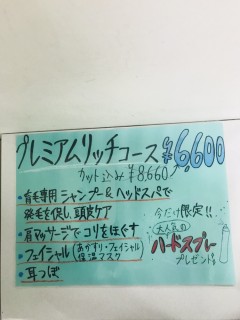 プレミアムリッチコース ¥6,600
カット込み ¥8,660
・育毛専用シャンプー&ヘッドスパで
発毛を促し、頭皮ケア
・肩マッサージでコリをほぐす
・フェイシャル(あかすり・フェイシャル
保湿マスク)
・耳つぼ
今だけ限定!!
大人気の
ハードスプレー
プレゼント